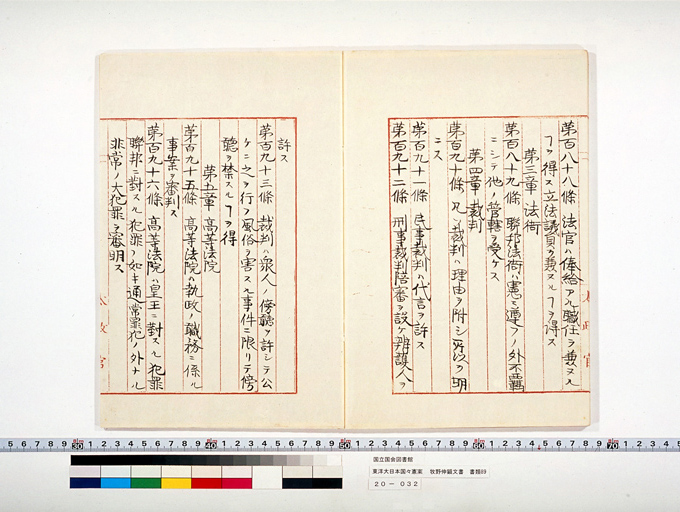 第百八十八條 法官ハ俸給アル職任ヲ兼ヌル
ヿヲ得ス立法議員ヲ兼ヌルヿヲ得ス
第三章 法衙
第百八十九條 聯邦法衙ハ憲ニ遵フノ外不羈
ニシテ他ノ管轄ヲ受ケス
第四章 裁判
第百九十條 凡ソ裁判ハ理由ヲ附シ所以ヲ明
ニス
第百九十一條 民事裁判ハ代言ヲ許ス
第百九十二條 刑事裁判陪審ヲ設ケ辨護人ヲ
太政官
許ス
第百九十三條 裁判ハ衆人ノ傍聽ヲ許シテ公
ケニ之ヲ行フ風俗ヲ害スル事件ニ限リテ傍
聽ヲ禁スルヿヲ得
第五章 高等法院
第百九十五條 高等法院ハ執政ノ職務ニ係ル
事案ヲ審判ス
第百九十六條 高等法院ハ皇王ニ對スル犯罪
聯邦ニ對スル犯罪ノ如キ通常罪犯ノ外ナル
非常ノ大犯罪ヲ審明ス
太政官
国立国会図書館
東洋大日本国々憲案 牧野伸顕文書 書類69
20-032